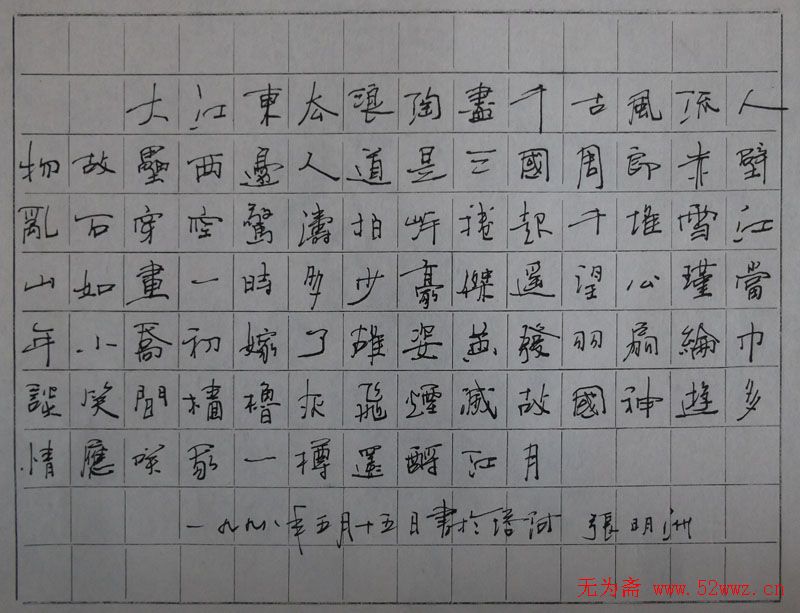 大江東去浪陶盡千古風流人
物故壘西邊人道是三國周郎赤壁
亂石穿空驚濤拍岸捲起千堆雪江
山如畫一時多少豪傑遥望公瑾當
年小喬初嫁了雄姿英發羽扇綸巾
談笑間檣櫓灰飛煙滅故國神遊多
情應咲我一樽還酹江月
一九九八年五月十五日書於 張明洲
无为斋 www.52wwz.cn